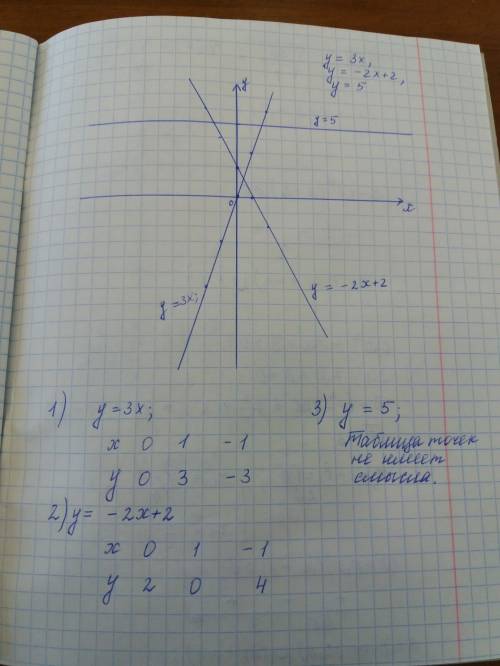 y = 3x,
y = -2x+2,
y = 5
y
y=5
0
x
y = -2x+2
y =3x;
1) y=3x;
x 0 1 -1
y 0 3 -3
2) y= -2x+2
x 0 1 -1
y 2 0 4
3) y = 5;
Таблица точек
не имеет
смысла.